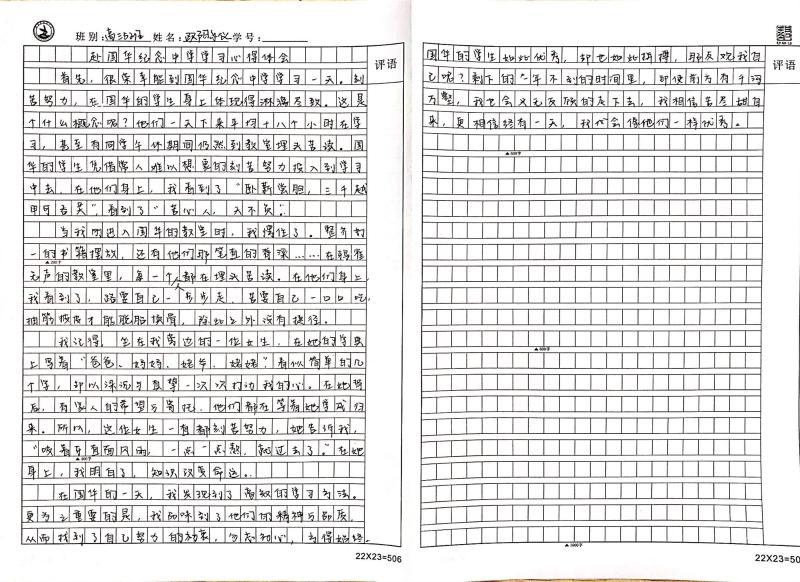 班别:高三5班 姓名: 学号:
赴国华纪念中学学习心得体会
首先,很荣幸能到国华纪念中学学习一天。刻
苦努力,在国华的学生身上体现得淋漓尽致。这是
个什么概念呢?他们一天下来平均十八个小时在学
习,甚至有同学午休期间仍然到教室埋头苦读。国
华的学生凭借常人难以想象的刻苦努力投入到学习
中去。在他们身上,我看到了“卧薪尝胆,三千越
甲可吞吴”,看到了“苦心人,天不负”。
当我刚进入国华的教室时,我愣住了。整齐划
一的书籍摆放,还有他们那笔直的脊梁……在鸦雀
无声的教室里,每一个人都在埋头苦读。在他们身上,
我看到了,路要自己一步步走,苦要自己一口口吃,
抽筋扒皮才能脱胎换骨,除此之外没有捷径。
我记得,坐在我旁边的一位女生,在她的学案
上写着“爸爸、妈妈、姥爷、姥姥”看似简单的几
个字,却以深沉与真挚一次次打动我的心。在她背
后,有家人的希望与寄托,他们都在等着她学成归
来。所以,这位女生一直都刻苦努力,她告诉我,
“咬着牙直面风雨,一点一点熬,就过去了。”在她
身上,我明白了,知识改变命运。
在国华的一天,我发现到了高效的学习方法。
更为之重要的是,我品味到了他们的精神与品质,
从而找到了自己努力的动力,勿忘初心,方得始终
评语
22X23=506
国华的学生如此优秀,却也如此拼搏,
自己呢?剩下的一年不到的时间里,即使前方有千沟
万壑,我也会义无反顾的走下去,我相信苦尽甘自
来,更相信终有一天,我也会像他们一样优秀。
评语
22X23=50